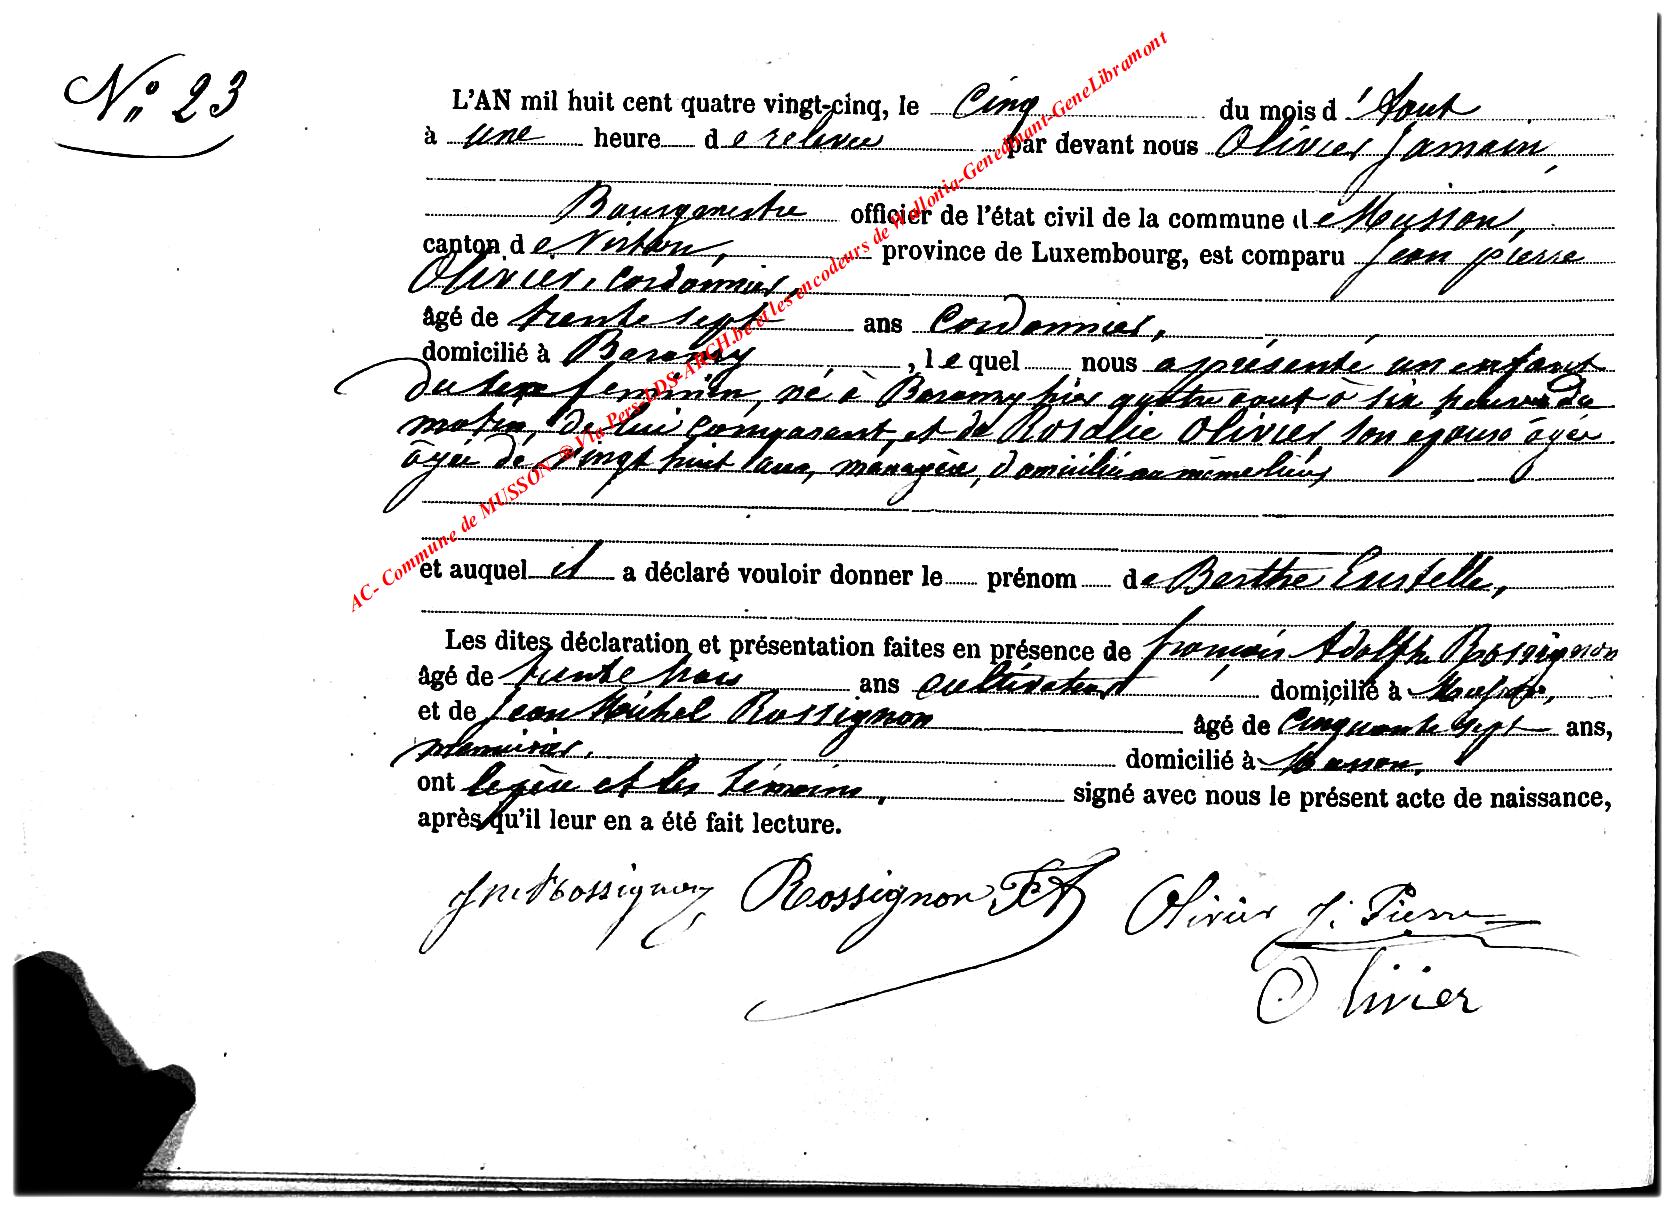 N° 23
L'AN mil huit cent quatre vingt-cinq, le cinq du mois d'Aout
à une heure de relevée par devant nous Olivier Jamain,
Bourgmestre officier de l'état civil de la commune de Musson,
canton de Virton, province de Luxembourg, est comparu Jean pierre
Olivier, cordonnier,
âgé de trente sept ans cordonnier,
domicilié à Baranzy, lequel nous a présenté un enfant
du sexe feminin, né à Baranzy hier quatre aout à six heures du
matin, de lui comparant, et de Rosalie Olivier son epouse âgée
âgée de vingt huit ans, ménagère, domiciliée au même lieu,
et auquel il a déclaré vouloir donner le prénom de Berthe
Les dites déclaration et présentation faites en présence de françois Adolphe Rossignon
âgé de trente trois ans cultivateur domicilié à Musson,
et de Jean Michel Rossignon âgé de cinquante sept ans,
domicilié à Musson,
ont le père et les témoins, signé avec nous le présent acte de naissance,
après qu'il leur en a été fait lecture.
JM Rossignon Rossignon FA Olivier J. Pierre
Olivier
AC- Commune de MUSSON ®Via Pers-LDS-ARCH.be et les encodeurs de Wallonia-Genedinant-GeneLibramont